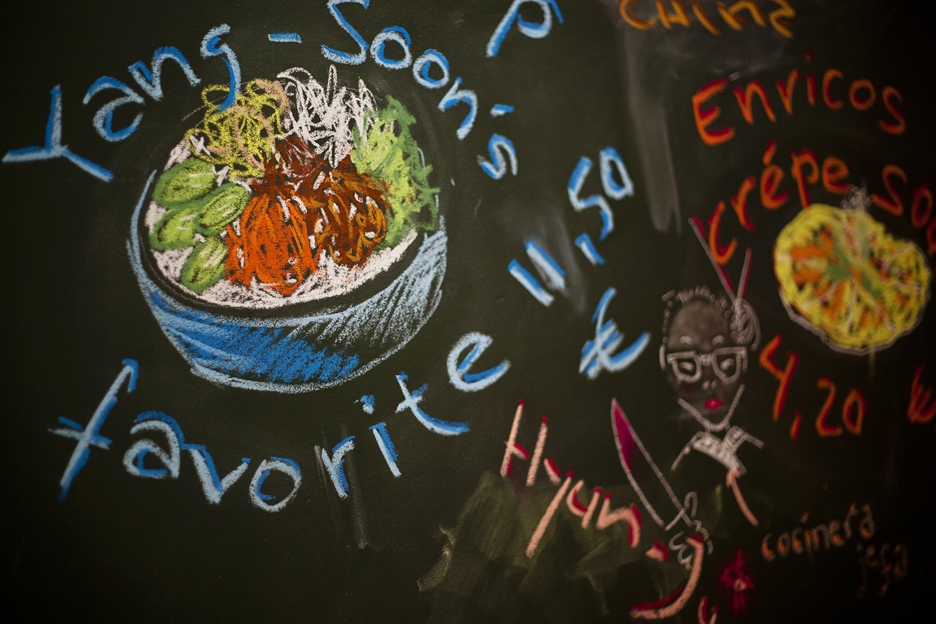 Yang-Soon's
favorite
11,50
€
China
Enricos
crépe
4,20
cocinera